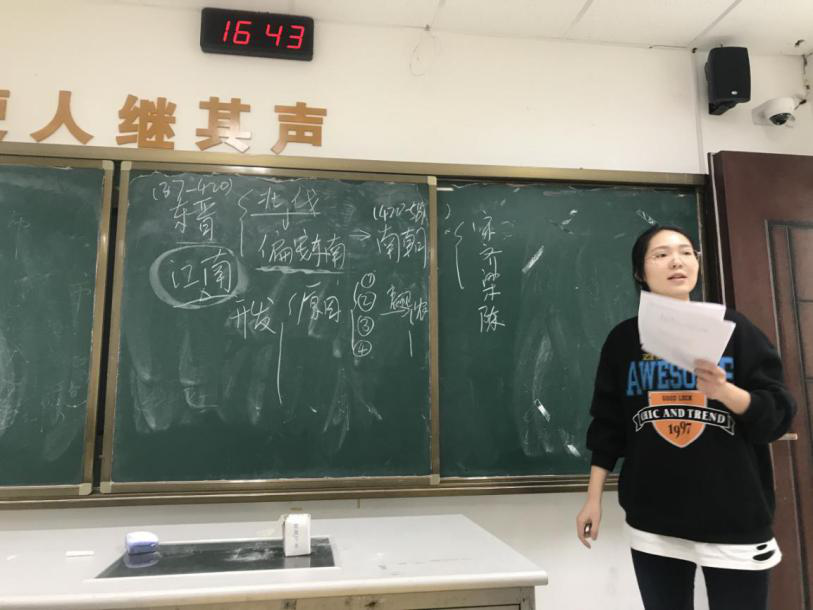 16 43
人继其声
(317-420)
东晋
北伐
偏安东南
南朝
宋齐梁陈
江南
开发
原因
①
②
③
④
AWESOME
GOOD LUCK
CHIC AND TREND
1997